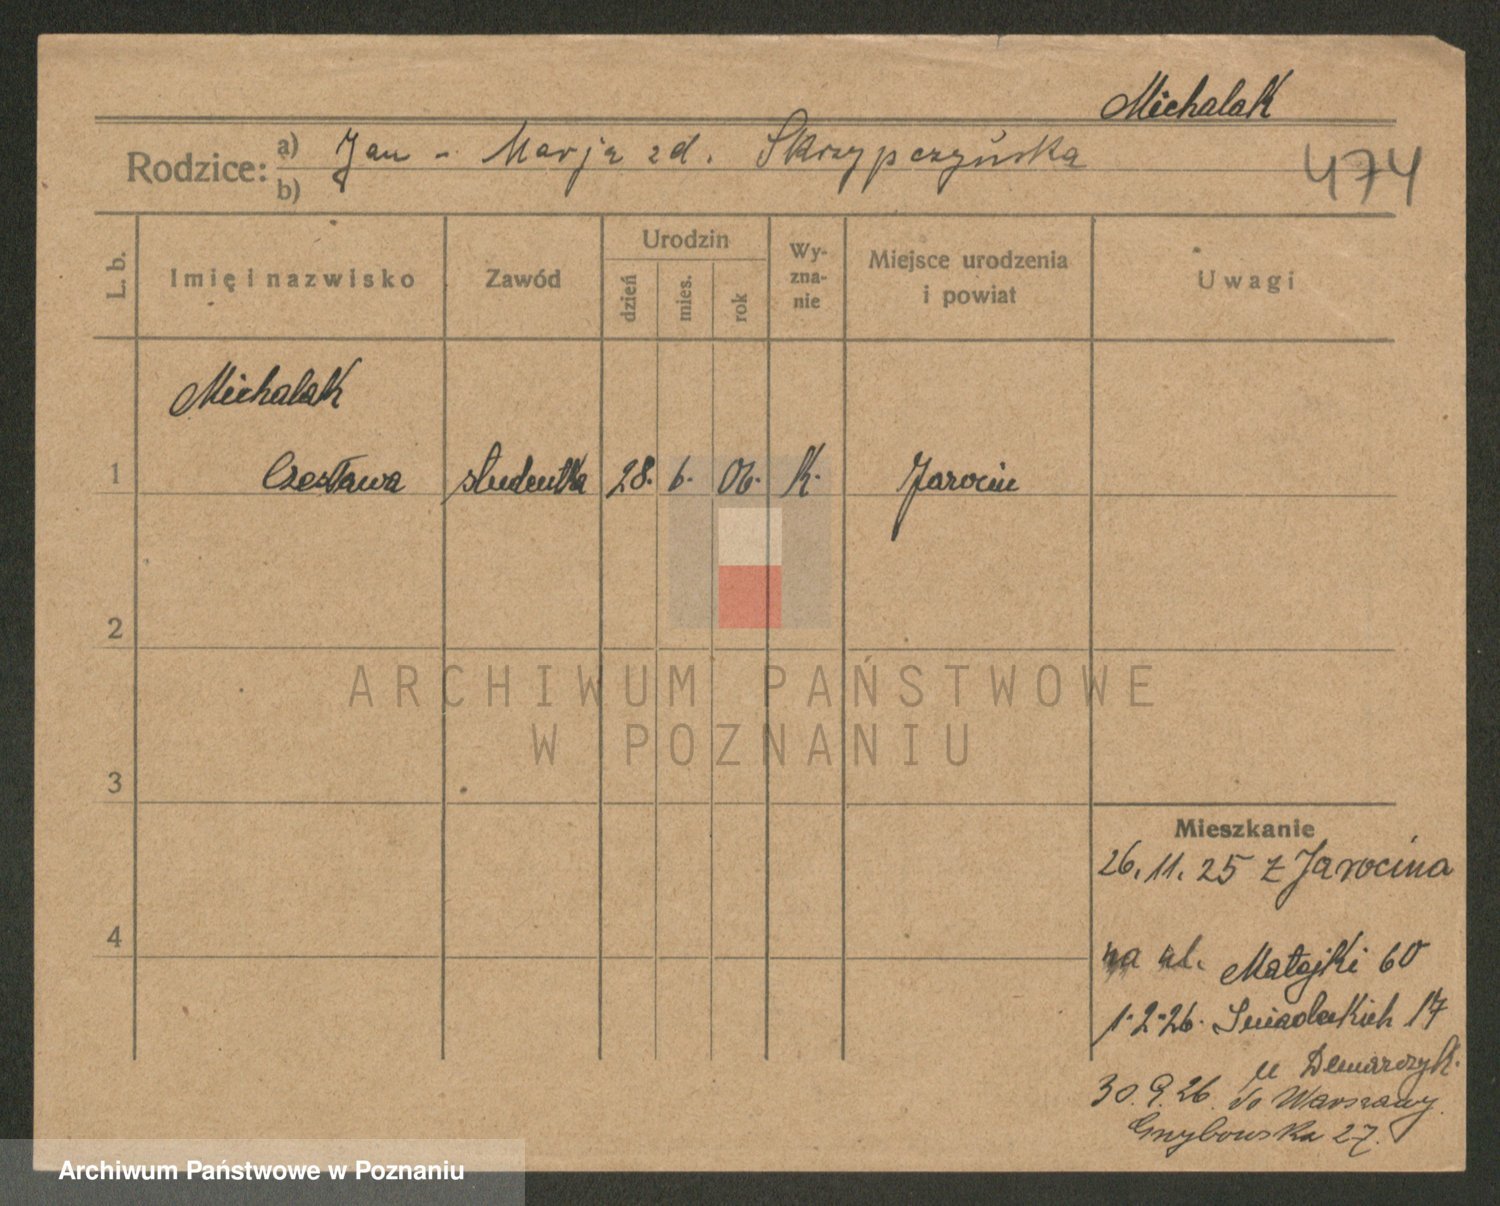 Michalak
Rodzice: a) Jan - Marja zd. Skrzypczyńska
b)
474
L. b.
Imię i nazwisko
Zawód
Urodzin
dzień
mies.
rok
Wy-
zna-
nie
Miejsce urodzenia
i powiat
Uwagi
Michalak
1 Czesława studentka 28. 6. 06. k. Jarocin
2
3
4
Mieszkanie
26. 11. 25 z Jarocina
na ul. Matejki 60
1-2-26. Śniadeckich 17
u Demarczyk.
30. 9. 26. do Warszawy
27.
ARCHIWUM PAŃSTWOWE
W POZNANIU
Archiwum Państwowe w Poznaniu